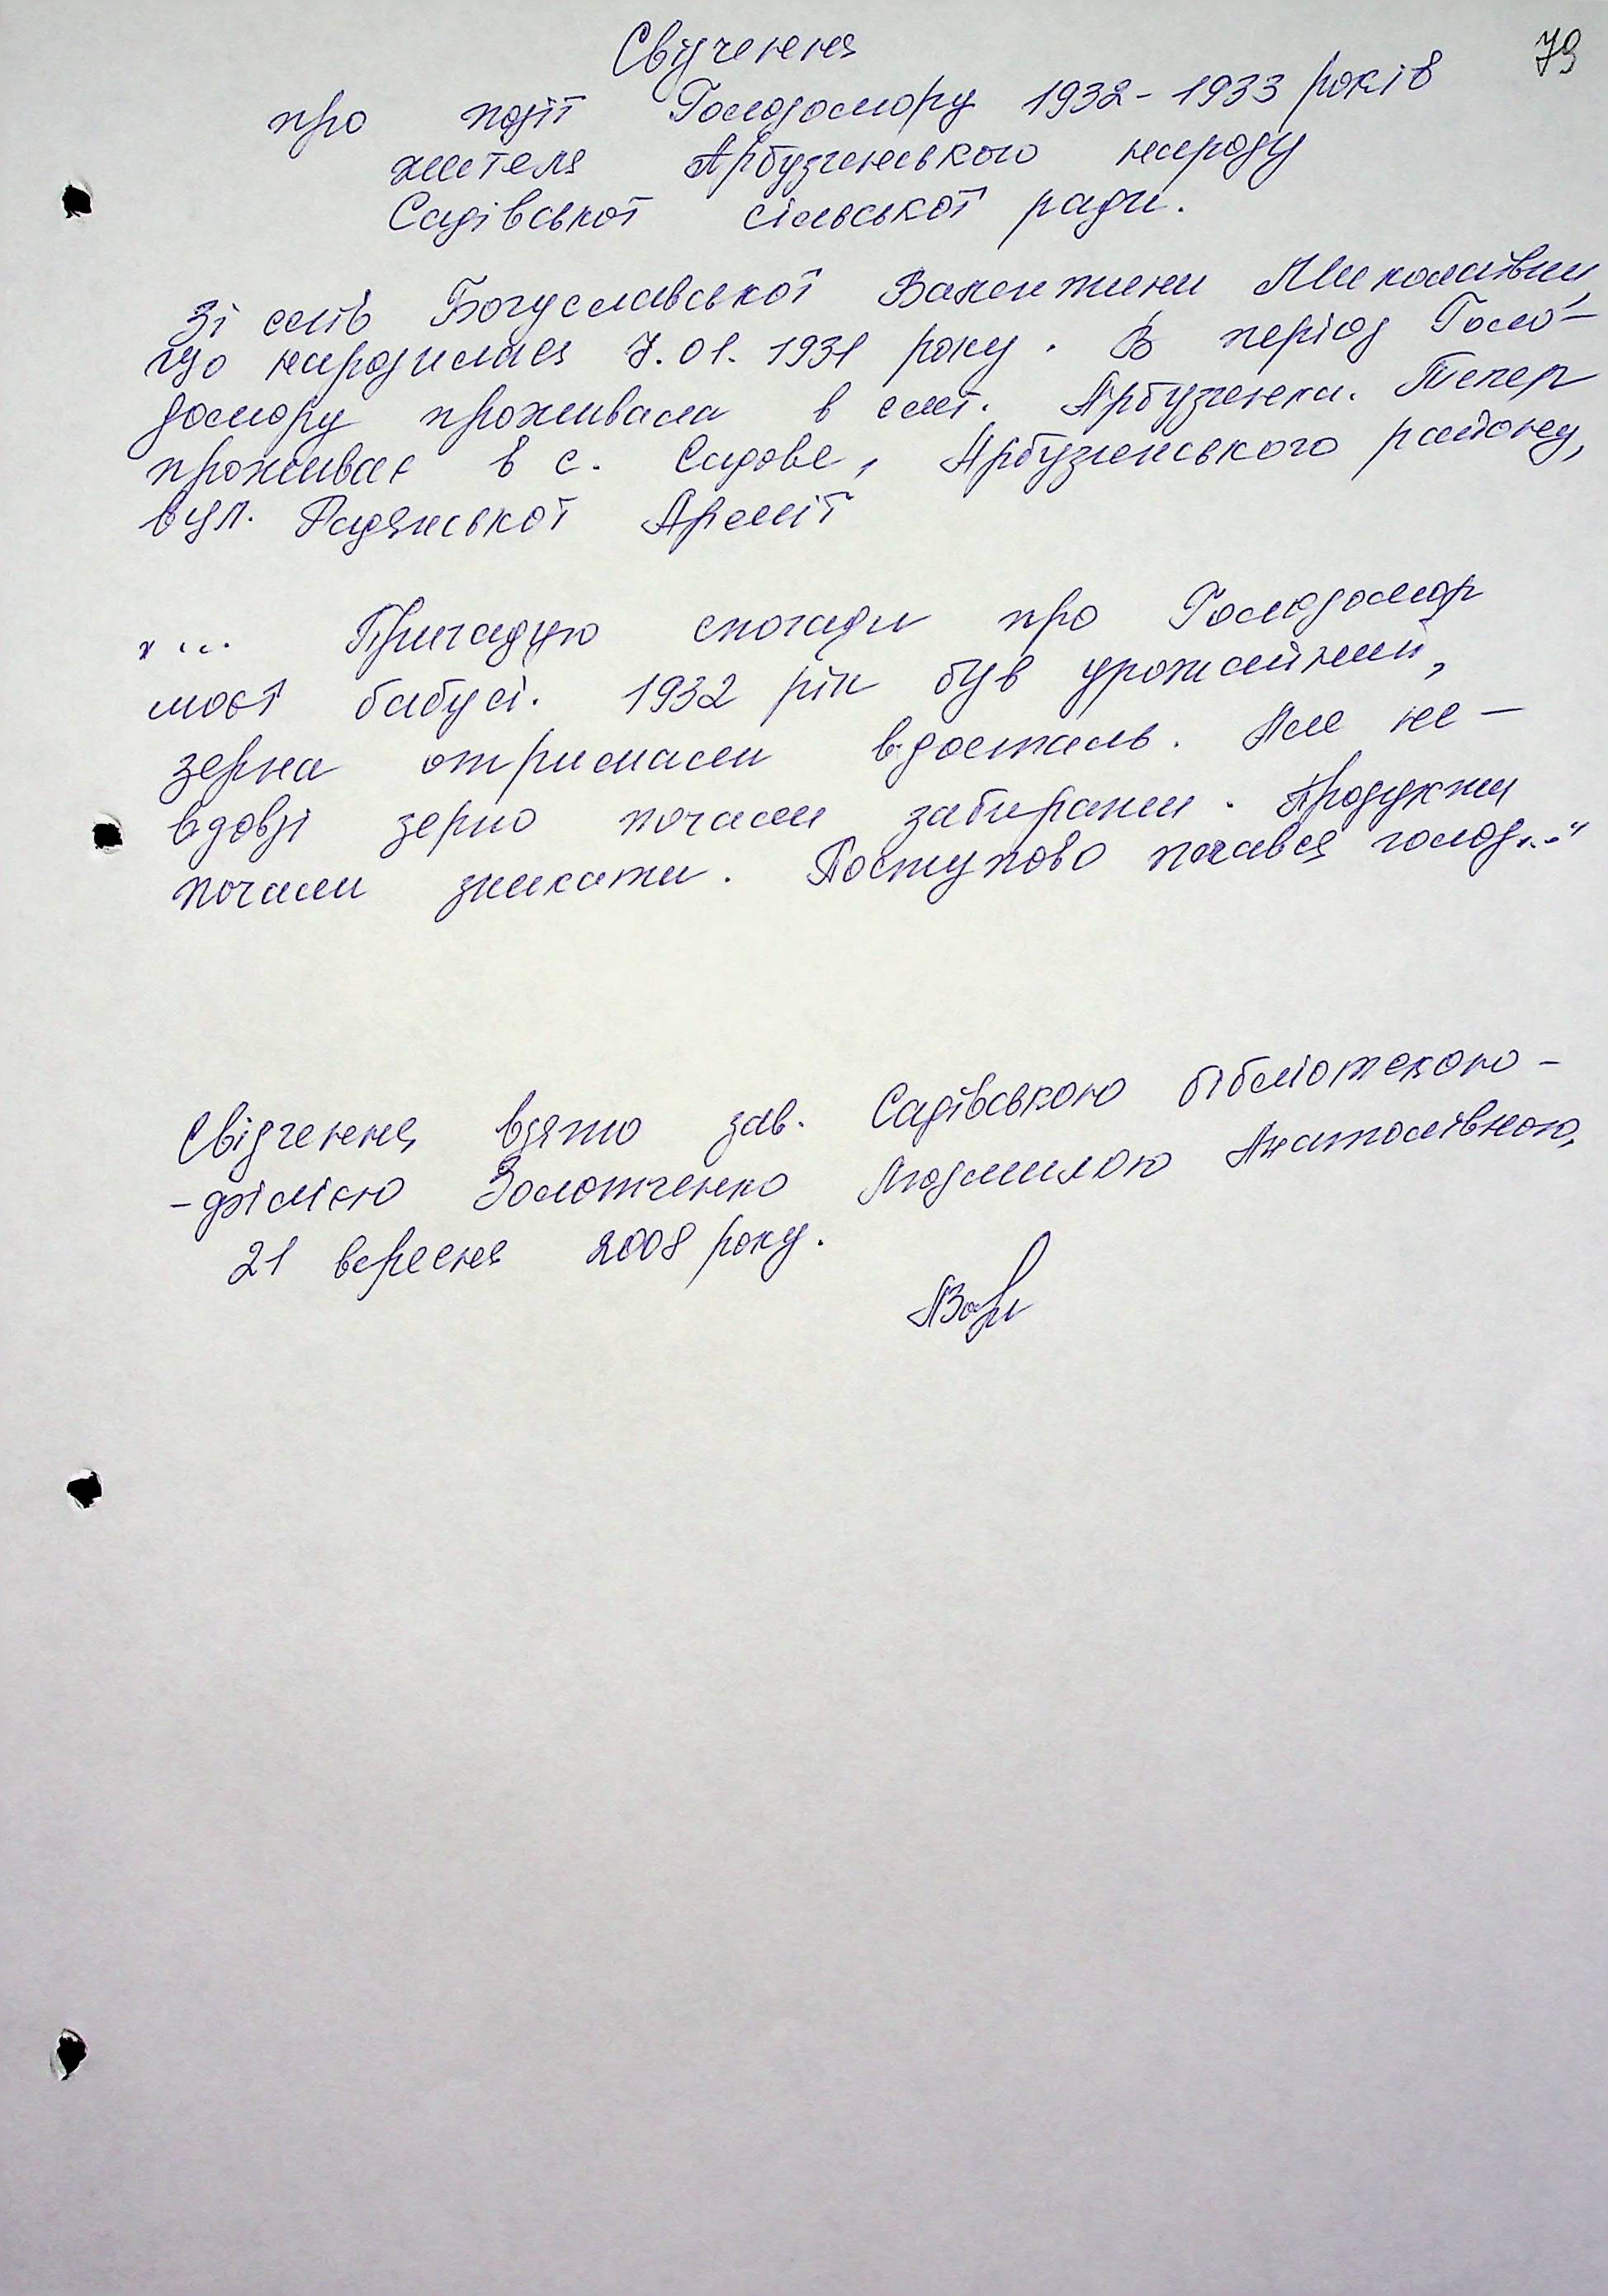 79
Свідчення
про події Голодомору 1932-1933 років
жителя Арбузинського народу
Садівської сільської ради.
Зі слів Богуславської Валентини Миколаївни,
що народилася 7.01.1931 року. В період Голо-
домору проживала в смт. Арбузинка. Тепер
проживає в с. Садове, Арбузинського району,
вул. Радянської Армії
"... Пригадую спогади про Голодомор
моєї бабусі. 1932 рік був урожайний,
зерна отримали вдосталь. Але не-
вдовзі зерно почали забирати. Продукти
почали зникати. Поступово почався голод..."
Свідчення взято зав. Садівською бібліотекою-
-філією Золотченко Людмилою Анатоліївною,
21 вересня 2008 року.